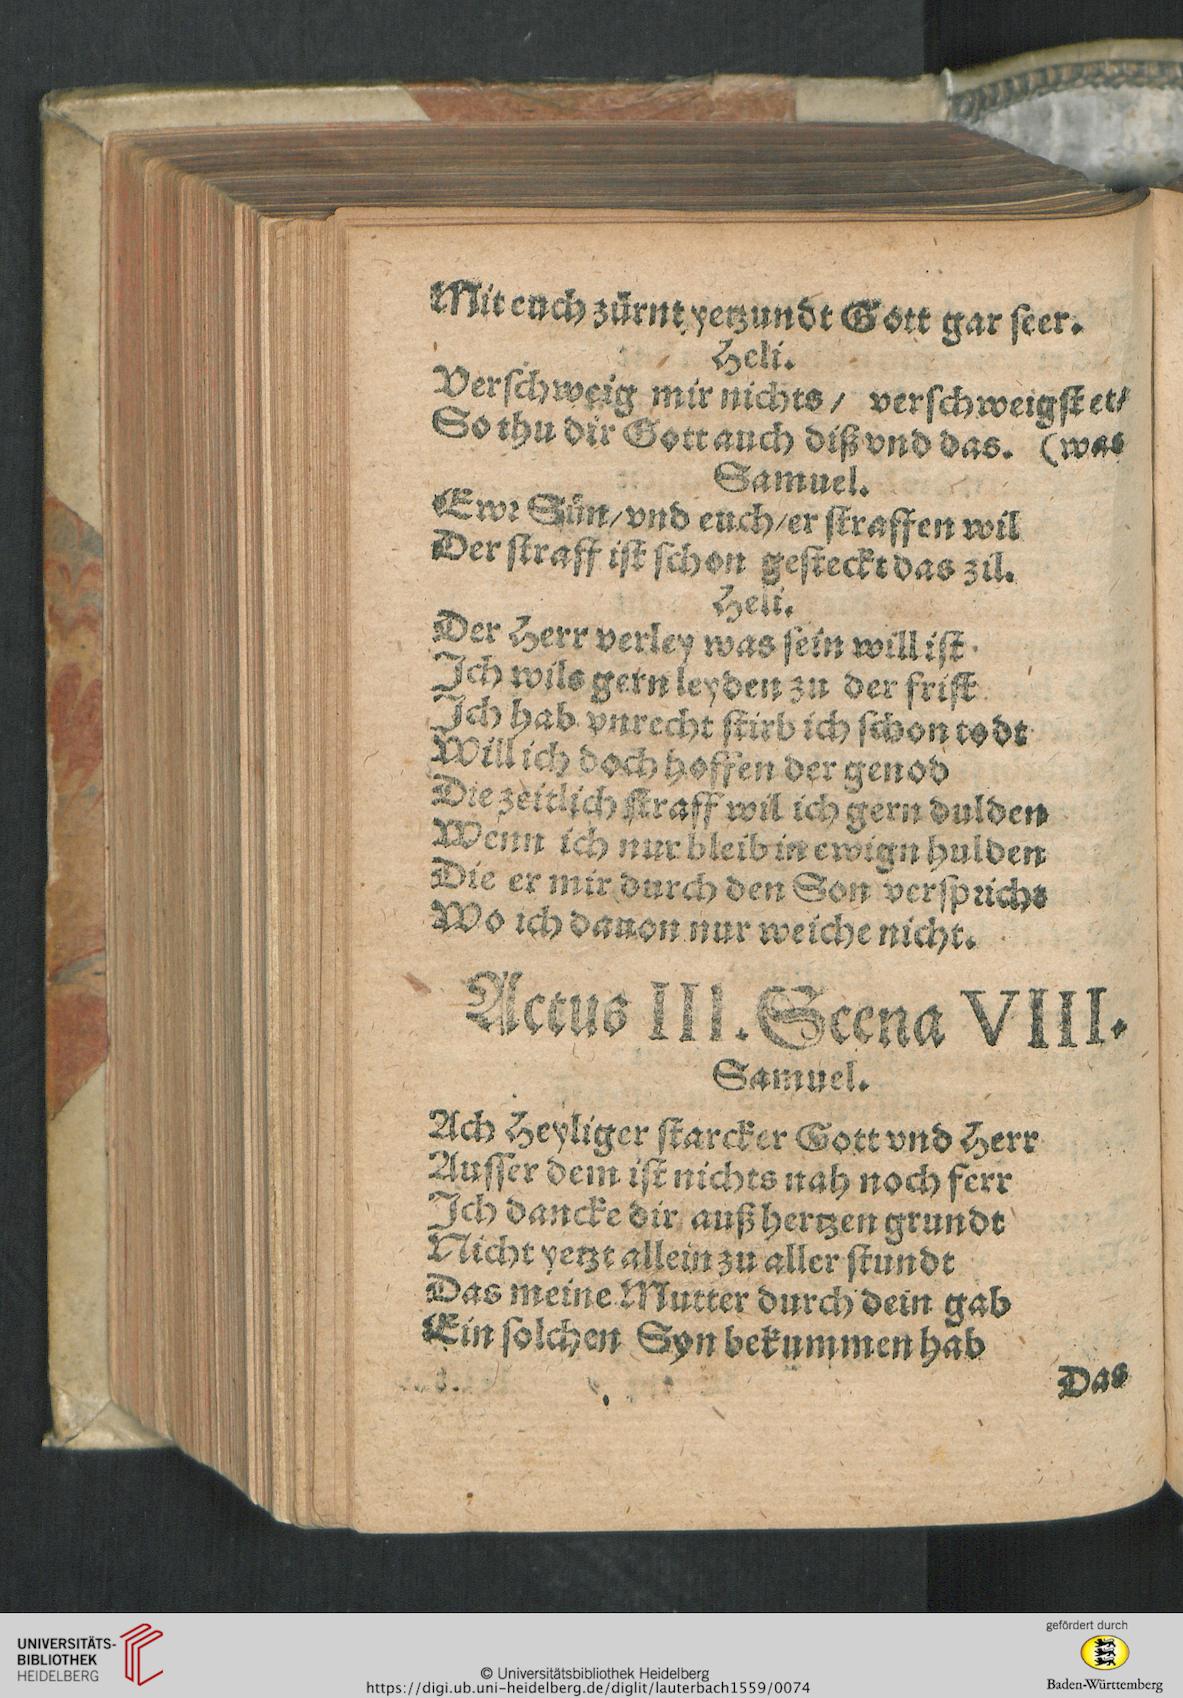 Mit euch zürnt yetzundt Gott gar seer.
Heli.
Verschweig mir nichts / verschweigst et⸗
So thu dir Gott auch diß vnd das. (was
Samuel.
Ewr Sün/vnd euch/er straffen wil
Der straff ist schon gesteckt das zil.
Heli.
Der Herr verley was sein will ist
Ich wils gern leyden zu der frist
Ich hab vnrecht stirb ich schon todt
Will ich doch hoffen der genod
Die zeitlich straff wil ich gern dulden
Wenn ich nur bleib in ewign hulden
Die er mir durch den Son verspricht
Wo ich dauon nur weiche nicht.
Actus III. Scena VIII.
Samuel.
Ach Heyliger starcker Gott vnd Herr
Ausser dem ist nichts nah noch ferr
Ich dancke dir auß hertzen grundt
Nicht yetzt allein zu aller stundt
Das meine Mutter durch dein gab
Ein solchen Syn bekummen hab
Das
UNIVERSITÄTS-
BIBLIOTHEK
HEIDELBERG
© Universitätsbibliothek Heidelberg
https://digi.ub.uni-heidelberg.de/diglit/lauterbach1559/0074
gefördert durch
Baden-Württemberg